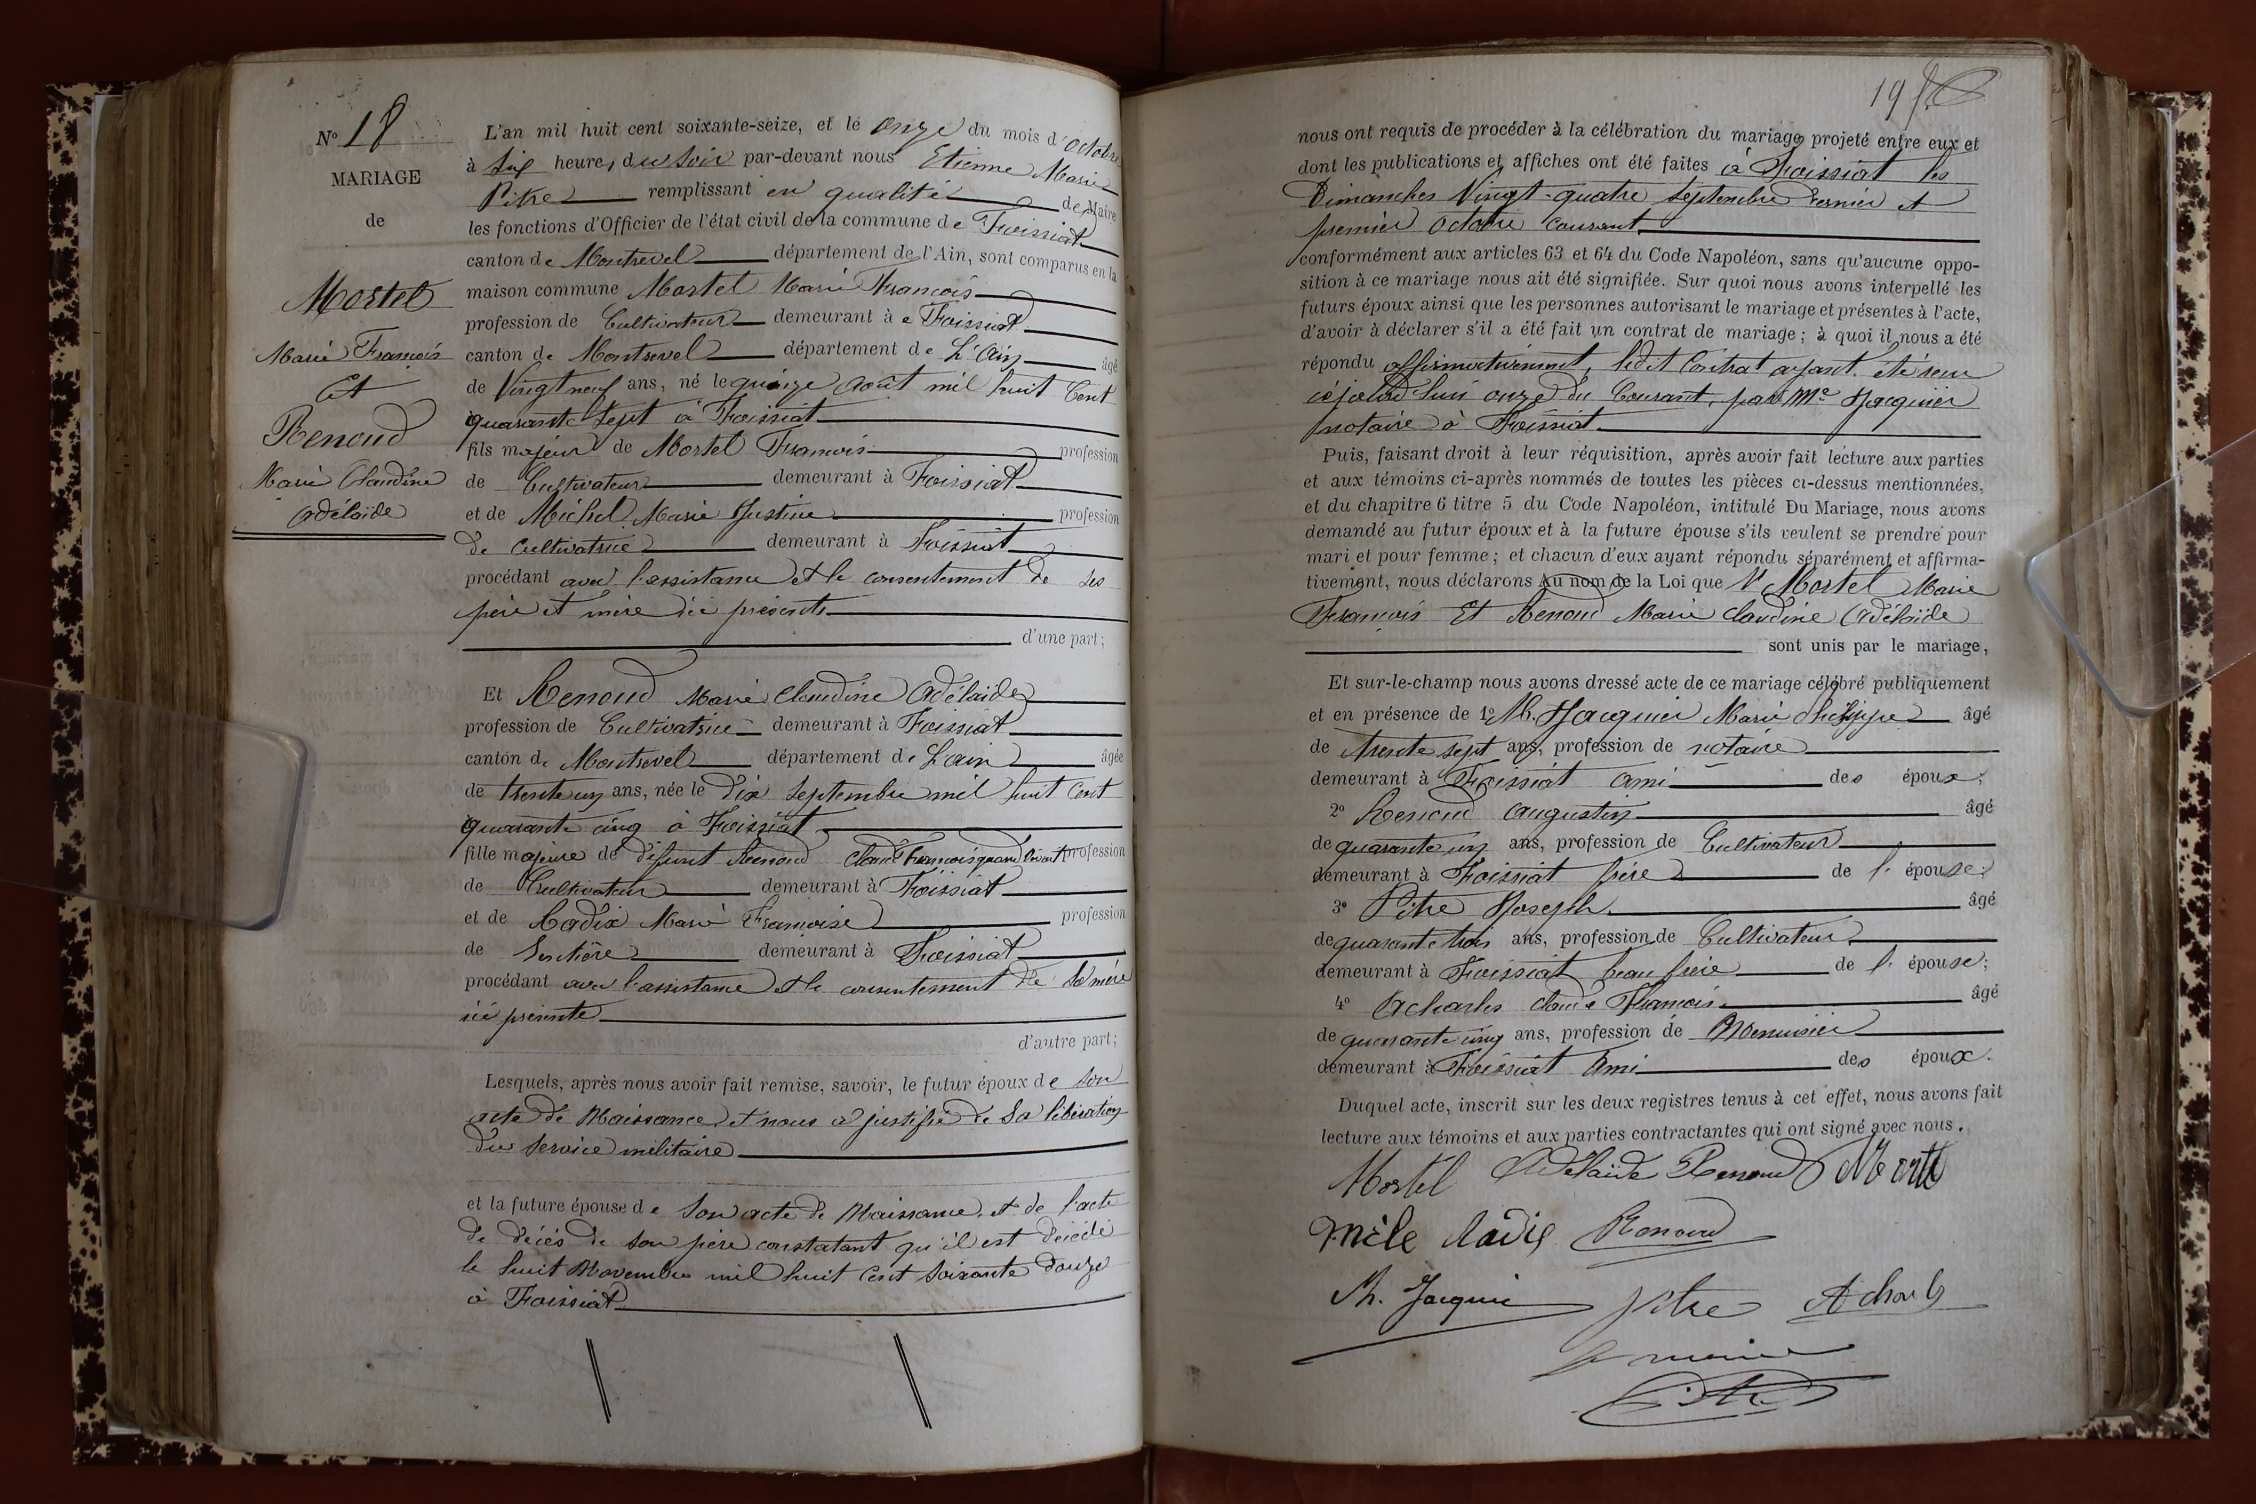 N° 18
MARIAGE
de
Mortel
Marie François
Et
Renoud
Marie Claudine
Adélaïde
L'an mil huit cent soixante-seize, et le onze du mois d'octobre
à six heures du soir par-devant nous Etienne Marie
Pitre remplissant en qualité de Maire
les fonctions d'Officier de l'état civil de la commune de Foissiat
canton de Montrevel département de l'Ain, sont comparus en la
maison commune Mortel Marie François
profession de Cultivateur demeurant à Foissiat
canton de Montrevel département de L'Ain âgé
de Vingt neuf ans, né le quinze août mil huit Cent
quarante sept à Foissiat
fils majeur de Mortel François profession
de Cultivateur demeurant à Foissiat
et de Michel Marie Justine profession
de cultivatrice demeurant à Foissiat
procédant avec l'assistance et le consentement de ses
père et mère ici présents
d'une part;
Et Renoud Marie Claudine Adélaïde
profession de Cultivatrice demeurant à Foissiat
canton de Montrevel département de L'ain âgée
de trente un ans, née le dix septembre mil huit Cent
quarante cinq à Foissiat
fille majeure de défunt Renoud Claude François quand vivant profession
de Cultivateur demeurant à Foissiat
et de Cadix Marie Françoise profession
de Rentière demeurant à Foissiat
procédant avec l'assistance et le consentement de sa mère
ici présente
d'autre part;
Lesquels, après nous avoir fait remise, savoir, le futur époux de son
acte de Naissance et nous a justifié de sa libération
du service militaire
et la future épouse de son acte de Naissance et de l'acte
de décès de son père constatant qu'il est décédé
le huit Novembre mil huit Cent soixante douze
à Foissiat
19
nous ont requis de procéder à la célébration du mariage projeté entre eux et
dont les publications et affiches ont été faites à Foissiat les
Dimanches Vingt-quatre septembre dernier et
premier octobre courant
conformément aux articles 63 et 64 du Code Napoléon, sans qu'aucune oppo-
sition à ce mariage nous ait été signifiée. Sur quoi nous avons interpellé les
futurs époux ainsi que les personnes autorisant le mariage et présentes à l'acte,
d'avoir à déclarer s'il a été fait un contrat de mariage; à quoi il nous a été
répondu affirmativement, ledit Contrat ayant été reçu
cejourd'hui onze du Courant, par Me Jacquier
notaire à Foissiat
Puis, faisant droit à leur réquisition, après avoir fait lecture aux parties
et aux témoins ci-après nommés de toutes les pièces ci-dessus mentionnées,
et du chapitre 6 titre 5 du Code Napoléon, intitulé Du Mariage, nous avons
demandé au futur époux et à la future épouse s'ils veulent se prendre pour
mari et pour femme; et chacun d'eux ayant répondu séparément et affirma-
tivement, nous déclarons Au nom de la Loi que Mortel Marie
François Et Renoud Marie Claudine Adélaïde
sont unis par le mariage,
Et sur-le-champ nous avons dressé acte de ce mariage célébré publiquement
et en présence de 1° M. Jacquier Marie Philippe âgé
de trente sept ans, profession de notaire
demeurant à Foissiat ami des époux;
2° Renoud Augustin âgé
de quarante un ans, profession de Cultivateur
demeurant à Foissiat frère de l'épouse;
3° Pitre Joseph âgé
de quarante trois ans, profession de Cultivateur
demeurant à Foissiat beau frère de l'épouse;
4° Acharles Claude François âgé
de quarante cinq ans, profession de Menuisier
demeurant à Foissiat ami des époux.
Duquel acte, inscrit sur les deux registres tenus à cet effet, nous avons fait
lecture aux témoins et aux parties contractantes qui ont signé avec nous.
Mortel Adelaïde Renoud Mortel
Renoud
Ph. Jacquier Pitre Acharles
le maire
Pitre